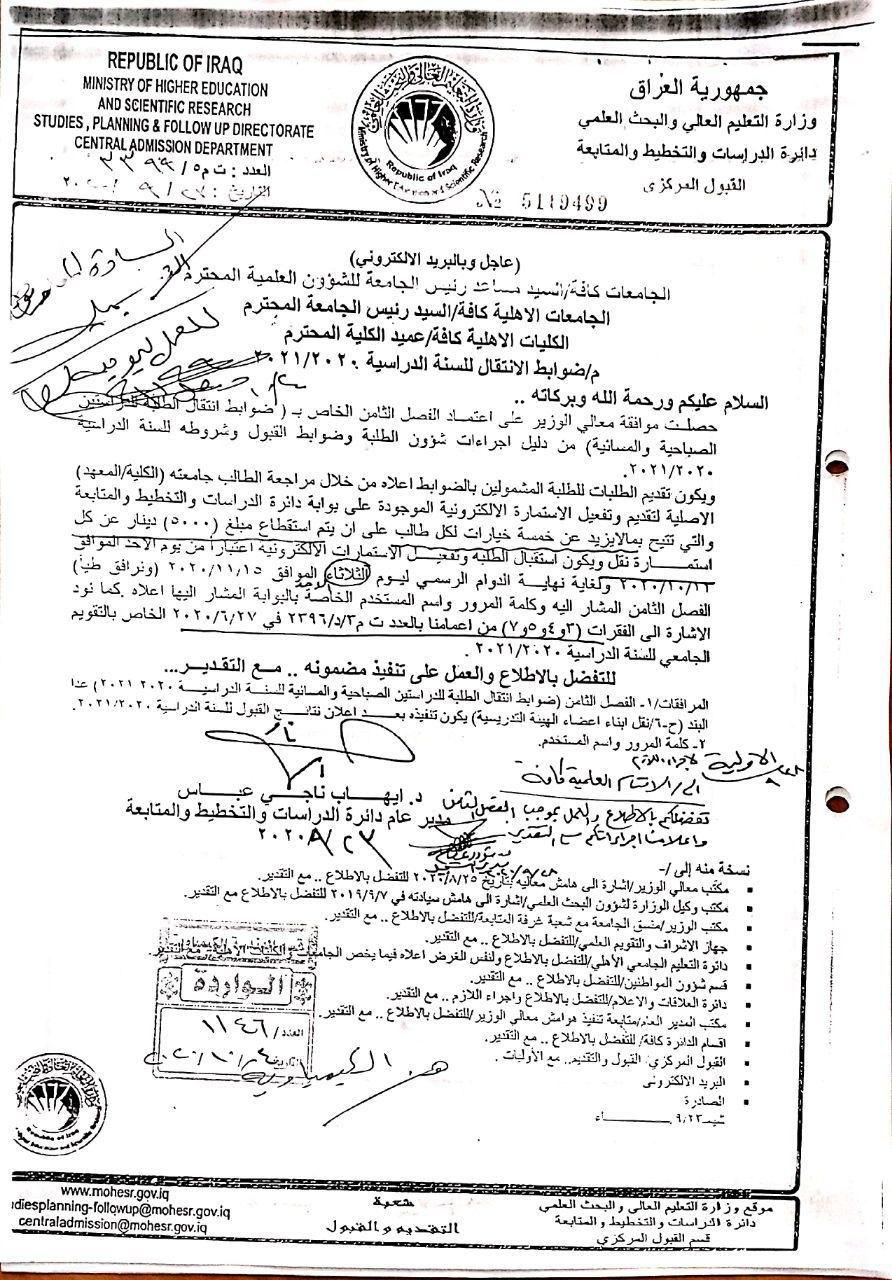 REPUBLIC OF IRAQ
MINISTRY OF HIGHER EDUCATION
AND SCIENTIFIC RESEARCH
STUDIES , PLANNING & FOLLOW UP DIRECTORATE
CENTRAL ADMISSION DEPARTMENT
العدد : ت م٥/
التاريخ :
Republic of Iraq
جمهورية العراق
وزارة التعليم العالي والبحث العلمي
دائرة الدراسات والتخطيط والمتابعة
القبول المركزي
№ 5119499
(عاجل وبالبريد الالكتروني)
الجامعات كافة/السيد مساعد رئيس الجامعة للشؤون العلمية المحترم
الجامعات الاهلية كافة/السيد رئيس الجامعة المحترم
الكليات الاهلية كافة/عميد الكلية المحترم
م/ضوابط الانتقال للسنة الدراسية ٢٠٢١/٢٠٢٠
السلام عليكم ورحمة الله وبركاته ..
حصلت موافقة معالي الوزير على اعتماد الفصل الثامن الخاص بـ (ضوابط انتقال الطلبة للدراستين
الصباحية والمسائية) من دليل اجراءات شؤون الطلبة وضوابط القبول وشروطه للسنة الدراسية
٢٠٢١/٢٠٢٠.
ويكون تقديم الطلبات للطلبة المشمولين بالضوابط اعلاه من خلال مراجعة الطالب جامعته (الكلية/المعهد)
الاصلية لتقديم وتفعيل الاستمارة الالكترونية الموجودة على بوابة دائرة الدراسات والتخطيط والمتابعة
والتي تتيح بمالايزيد عن خمسة خيارات لكل طالب على ان يتم استقطاع مبلغ (٥٠٠٠) دينار عن كل
استمارة نقل ويكون استقبال الطلبة وتفعيل الاستمارات الالكترونية اعتباراً من يوم الاحد الموافق
ولغاية نهاية الدوام الرسمي ليوم الثلاثاء الموافق ٢٠٢٠/١١/١٥ (ونرافق طياً)
الاحد
الفصل الثامن المشار اليه وكلمة المرور واسم المستخدم الخاصة بالبوابة المشار اليها اعلاه .كما نود
الاشارة الى الفقرات (٣و٤و٥و٧) من اعمامنا بالعدد ت م٣/د/٢٣٩٦ في ٢٠٢٠/٦/٢٧ الخاص بالتقويم
الجامعي للسنة الدراسية ٢٠٢١/٢٠٢٠ .
للتفضل بالاطلاع والعمل على تنفيذ مضمونه .. مع التقدير...
المرافقات/١- الفصل الثامن (ضوابط انتقال الطلبة للدراستين الصباحية والمسانية للسنة الدراسية ٢٠٢٠ ٢٠٢١) عدا
البند (ح-٦/نقل ابناء اعضاء الهيئة التدريسية) يكون تنفيذه بعد اعلان نتائج القبول للسنة الدراسية ٢٠٢١/٢٠٢٠.
٢- كلمة المرور واسم المستخدم.
الى/ الاقسام العلمية كافة
تفضلكم بالاطلاع والعمل بموجب الفصل الثامن
واعلامنا اجراءاتكم مع التقدير
د. ايهاب ناجي عباس
مدير عام دائرة الدراسات والتخطيط والمتابعة
نسخة منه إلى /-
مكتب معالي الوزير/اشارة الى هامش معاليه بتاريخ ٢٠٢٠/٨/٢٥ للتفضل بالاطلاع .. مع التقدير.
مكتب وكيل الوزارة لشؤون البحث العلمي/اشارة الى هامش سيادته في ٢٠١٩/٩/٧ للتفضل بالاطلاع مع التقدير.
مكتب الوزير/منسق الجامعة مع شعبة غرفة المتابعة/للتفضل بالاطلاع .. مع التقدير.
جهاز الاشراف والتقويم العلمي/للتفضل بالاطلاع .. مع التقدير.
دائرة التعليم الجامعي الأهلي/للتفضل بالاطلاع ولنفس الغرض اعلاه فيما يخص الجامعات مع التقدير.
قسم شؤون المواطنين/للتفضل بالاطلاع .. مع التقدير.
دائرة العلاقات والاعلام/للتفضل بالاطلاع واجراء اللازم .. مع التقدير.
مكتب المدير العام/متابعة تنفيذ هوامش معالي الوزير/للتفضل بالاطلاع .. مع التقدير.
اقسام الدائرة كافة/ للتفضل بالاطلاع .. مع التقدير.
القبول المركزي/ القبول والتقديم.. مع الأوليات .
البريد الالكتروني
الصادرة
٩/٢٣
الواردة
العدد/ ١١٤٦
التاريخ
Republic of Iraq
www.mohesr.gov.iq
diesplanning-followup@mohesr.gov.iq
centraladmission@mohesr.gov.iq
شعبة
التقديم والقبول
موقع وزارة التعليم العالي والبحث العلمي
دائرة الدراسات والتخطيط والمتابعة
قسم القبول المركزي